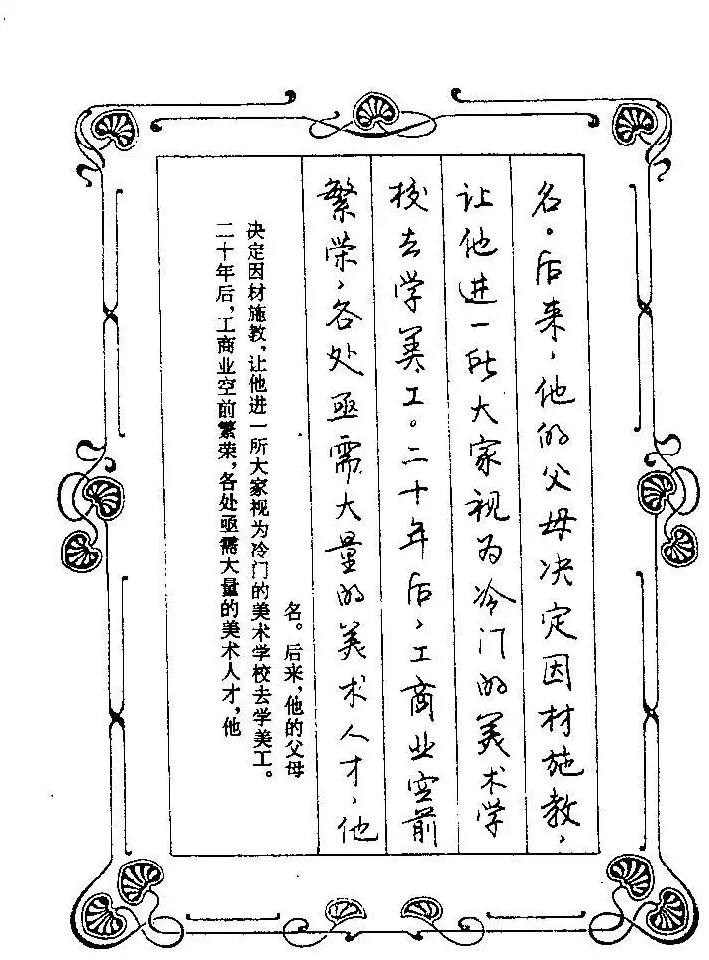 名。后来，他的父母决定因材施教，
让他进一所大家视为冷门的美术学
校去学美工。二十年后，工商业空前
繁荣，各处亟需大量的美术人才，他
名。后来，他的父母
决定因材施教，让他进一所大家视为冷门的美术学校去学美工。
二十年后，工商业空前繁荣，各处亟需大量的美术人才，他